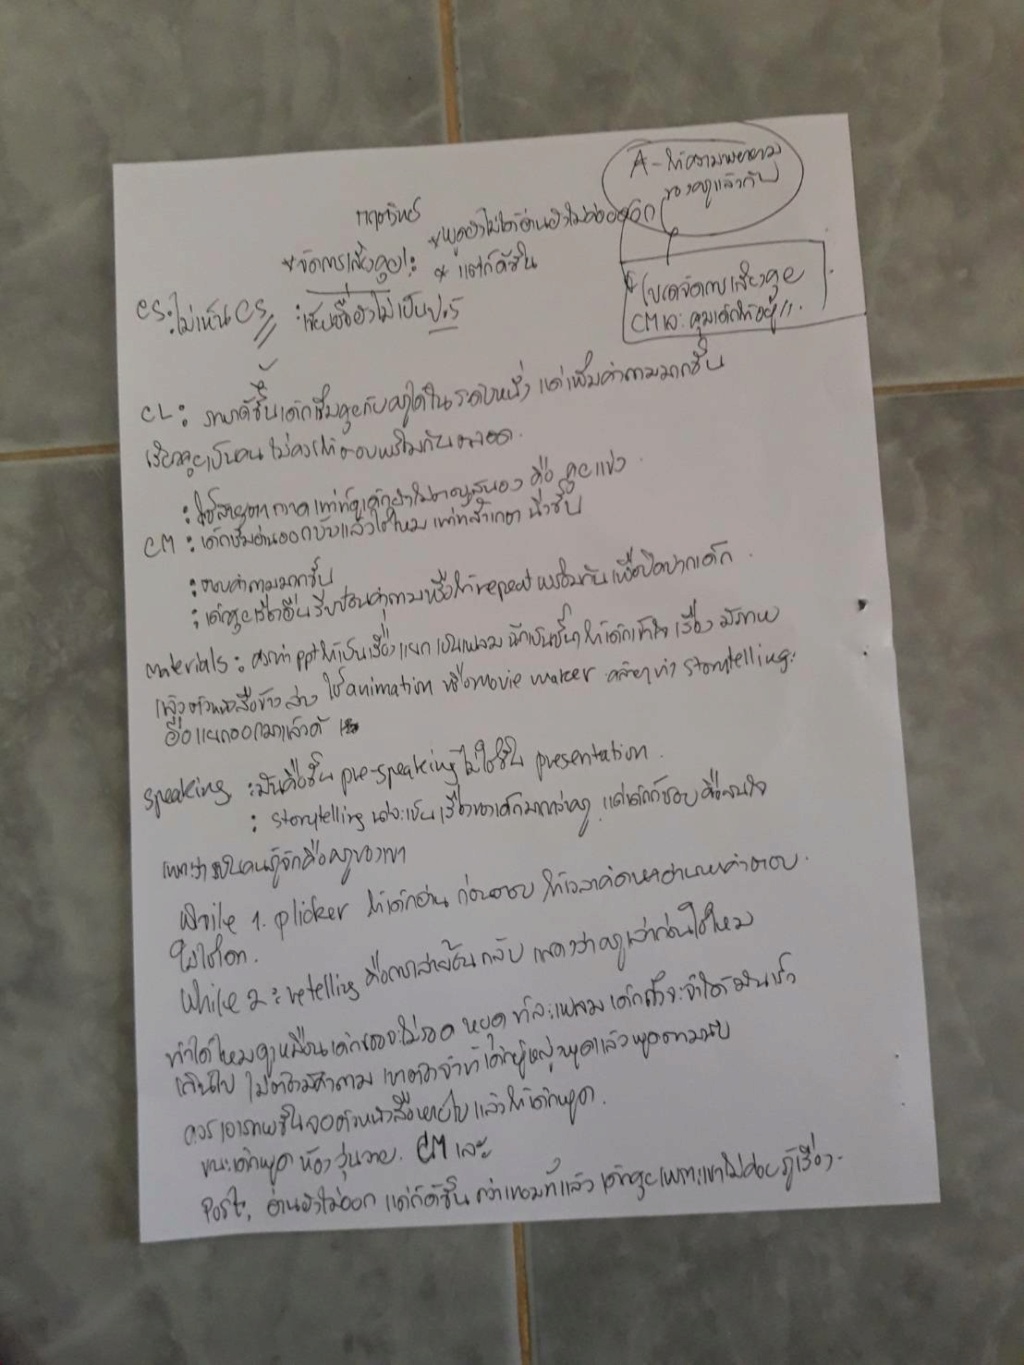 A - ให้ความพยายาม
ของครูแล้วกัน
* จัดการเสียงคุย!: * พูดยังไม่ได้อ่านยังไม่ค่อยออก
* แต่ก็ดีขึ้น
* โปรดจัดการเสียงคุย
CM เละ คุมเด็กให้อยู่!!
CS: ไม่เห็น CS : เขียนชื่อยังไม่เป็น
CL: ภาษาดีขึ้นเด็กเริ่มคุยกับครูได้ในระดับหนึ่ง แต่เพิ่มคำถามมากขึ้น
เรียกคุยเป็นคน ไม่ควรให้ตอบพร้อมกันตลอด.
: ใช้สายตากวาด เท่าที่ดูเด็กยังไม่ตอบสนอง คือ คุยแข่ง.
CM: เด็กเริ่มอ่านออกบ้างแล้วใช่ไหม เท่าที่สังเกตดีขึ้น
: ตอบคำถามมากขึ้น
: เด็กคุยเรื่องอื่นรีบป้อนคำถามหรือให้ repeat พร้อมกันเพื่อปิดปากเด็ก.
materials: ควรทำ ppt ให้เป็นเรื่อง แยกเป็นเฟรม ให้เด็กเข้าใจเรื่อง มีภาพ
แล้วตัวหนังสือข้างล่าง ใช้ animation หรือ movie maker คล้ายๆ ทำ storytelling:
แยกออกมาแล้วดี
Speaking : มันคือขั้น pre-speaking ไม่ใช่ขั้น presentation.
: storytelling น่าจะเป็นเรื่องของเด็กมากกว่าครู แต่เด็กก็ชอบ คือสนใจ
เพราะว่าเป็นคนรู้จักคือครูของเขา
While 1. plicker ให้เด็กอ่าน ก่อนตอบ ให้เวลาคิดหาอ่านทบคำตอบ.
ไม่ใช่เดา.
While 2: retelling คือการเล่าย้อนกลับ แสดงว่าครูเล่าก่อนใช่ไหม
ทำได้ไหมดูเหมือนเด็กเธอจะไม่รอด หยุดทีละเฟรม เด็กถึงจะจำได้ มันเร็ว
เกินไป ไม่ต้องมีคำถาม
ควรเอาภาพขึ้นจอตัวหนังสือหายไป แล้วให้เด็กพูด.
ขณะเด็กพูด ห้องวุ่นวาย. CM เละ
Post: อ่านยังไม่ออก แต่ก็ดีขึ้น กว่าเทอมที่แล้ว เด็กคุยเพราะเขาไม่ค่อยรู้เรื่อง.